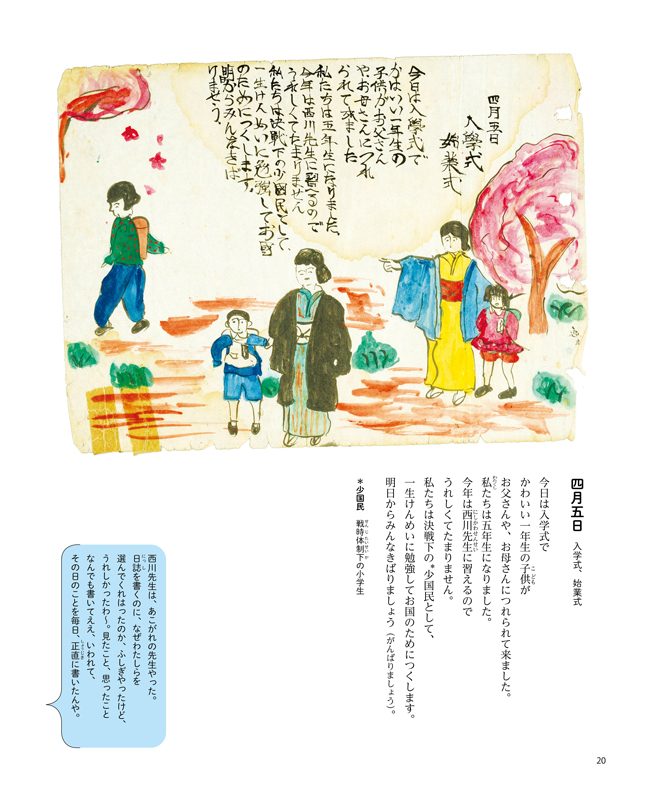 四月五日
入學式
始業式
今日は入學式で
かはいい一年生の
子供がお父さん
やお母さんにつれ
られて來ました
私たちは五年生になりました、
今年は西川先生に習へるので
うれしくてたまりません
私たちは決戰下の少國民として、
一生けんめいに勉強してお國
のためにつくします。
明日からみんなきば
りませう。
四月五日　入学式、始業式
今日は入学式で
かわいい一年生の子供が
お父さんや、お母さんにつれられて来ました。
私たちは五年生になりました。
今年は西川先生に習えるので
うれしくてたまりません。
私たちは決戦下の*少国民として、
一生けんめいに勉強してお国のためにつくします。
明日からみんなきばりましょう（がんばりましょう）。
*少国民　戦時体制下の小学生
西川先生は、あこがれの先生やった。
日誌を書くのに、なぜわたしらを
選んでくれはったのか、ふしぎやったけど、
うれしかったわ〜。見たこと、思ったこと
なんでも書いてええ、いわれて、
その日のことを毎日、正直に書いたんや。
20